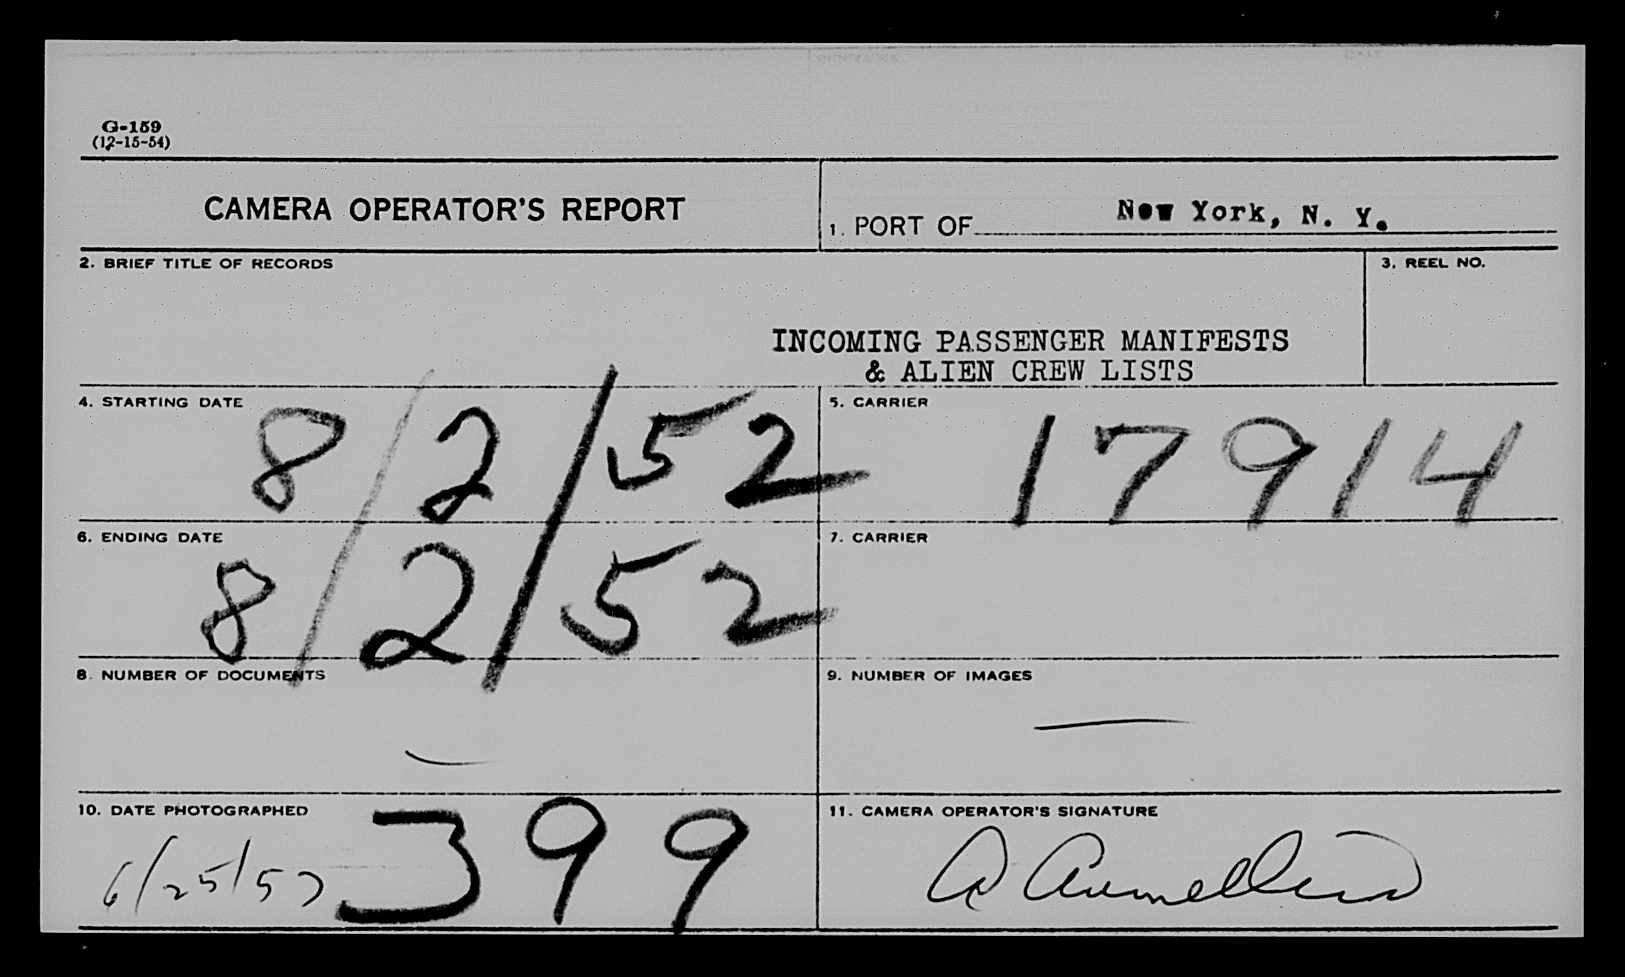 G-159
(12-15-54)
CAMERA OPERATOR'S REPORT
1. PORT OF New York, N. Y.
2. BRIEF TITLE OF RECORDS
INCOMING PASSENGER MANIFESTS
& ALIEN CREW LISTS
3. REEL NO.
4. STARTING DATE 8/2/52
5. CARRIER 17914
6. ENDING DATE 8/2/52
7. CARRIER
8. NUMBER OF DOCUMENTS
9. NUMBER OF IMAGES
10. DATE PHOTOGRAPHED 6/25/57 399
11. CAMERA OPERATOR'S SIGNATURE